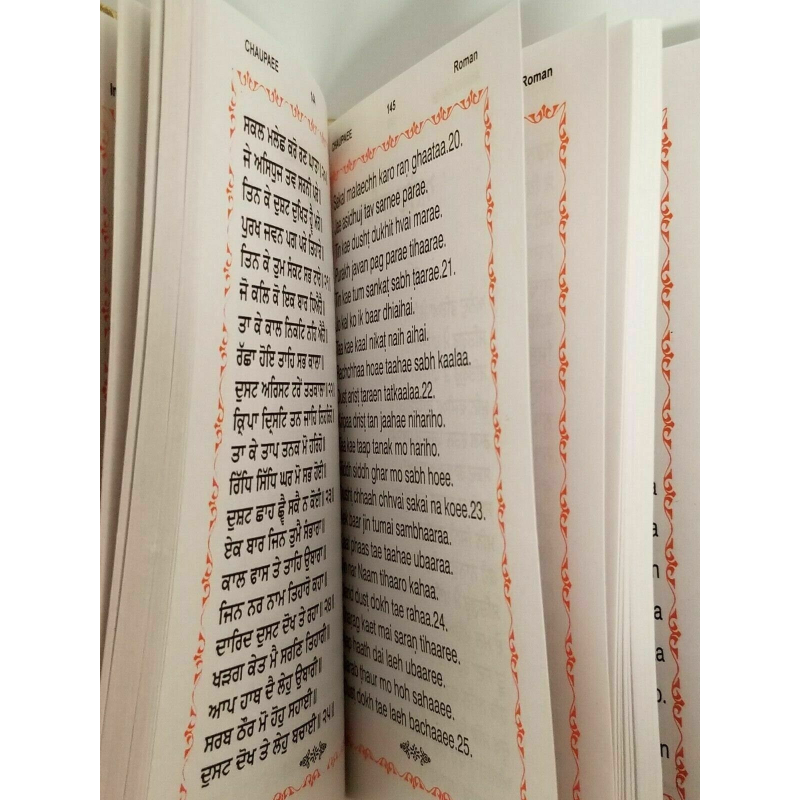 CHAUPAEE
ਸਕਲ ਮਲੇਛ ਕਰੋ ਰਣ ਘਾਤਾ
ਜੇ ਅਸਿਧੁਜ ਤਵ ਸਰਨੀ ਪਰੇ।
ਤਿਨ ਕੇ ਦੁਸ਼ਟ ਦੁਖਿਤ ਹ੍ਵੈ ਮਰੇ
ਪੁਰਖ ਜਵਨ ਪਗ ਪਰੇ ਤਿਹਾਰੇ।
ਤਿਨ ਕੇ ਤੁਮ ਸੰਕਟ ਸਭ ਟਾਰੇ॥੨੧॥
ਜੋ ਕਲਿ ਕੋ ਇਕ ਬਾਰ ਧਿਐਹੈ।
ਤਾ ਕੇ ਕਾਲ ਨਿਕਟਿ ਨਹਿ ਐਹੈ।
ਰੱਛਾ ਹੋਇ ਤਾਹਿ ਸਭ ਕਾਲਾ।
ਦੁਸਟ ਅਰਿਸਟ ਟਰੇਂ ਤਤਕਾਲਾ॥੨੨॥
ਕ੍ਰਿਪਾ ਦ੍ਰਿਸਟਿ ਤਨ ਜਾਹਿ ਨਿਹਰਿਹੋ
ਤਾ ਕੇ ਤਾਪ ਤਨਕ ਮੋ ਹਰਿਹੋ।
ਰਿੱਧਿ ਸਿੱਧਿ ਘਰ ਮੋ ਸਭ ਹੋਈ।
ਦੁਸ਼ਟ ਛਾਹ ਛ੍ਵੈ ਸਕੈ ਨ ਕੋਈ॥੨੩॥
ਏਕ ਬਾਰ ਜਿਨ ਤੁਮੈ ਸੰਭਾਰਾ।
ਕਾਲ ਫਾਸ ਤੇ ਤਾਹਿ ਉਬਾਰਾ।
ਜਿਨ ਨਰ ਨਾਮ ਤਿਹਾਰੋ ਕਹਾ।
ਦਾਰਿਦ ਦੁਸਟ ਦੋਖ ਤੇ ਰਹਾ॥੨੪॥
ਖੜਗ ਕੇਤ ਮੈ ਸਰਣਿ ਤਿਹਾਰੀ।
ਆਪ ਹਾਥ ਦੈ ਲੇਹੁ ਉਬਾਰੀ।
ਸਰਬ ਠੌਰ ਮੋ ਹੋਹੁ ਸਹਾਈ।
ਦੁਸਟ ਦੋਖ ਤੇ ਲੇਹੁ ਬਚਾਈ॥੨੫॥
CHAUPAEE 145 Roman
Sakal malaechh karo raṇ ghaataa.20.
asidhuj tav sarnee parae.
Tin kae dushṭ dukhit hvai marae.
Purakh javan pag parae tihaarae.
Tin kae tum sankaṭ sabh ṭaarae.21.
kal ko ik baar dhiaihai.
kae kaal nikaṭ naih aihai.
hoae taahae sabh kaalaa.
arisṭ ṭaraen tatkaalaa.22.
drisṭ tan jaahae nihariho.
kae taap tanak mo hariho.
siddh ghar mo sabh hoee.
chhaah chhvai sakai na koee.23.
baar jin tumai sambhaaraa.
phaas tae taahae ubaaraa.
nar Naam tihaaro kahaa.
dust dokh tae rahaa.24.
kaet mai saraṇ tihaaree.
haath dai laeh ubaaree.
ṭhaur mo hoh sahaaee.
dokh tae laeh bachaaee.25.
Roman